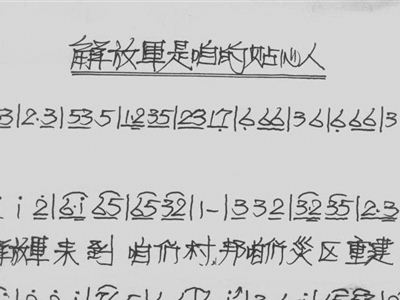 解放軍是咱的贴心人
3|2·3|53·5|1235|2317|6666|36|6666|3
i i 2|6·i 65|6532|1-|332|3235|2·3
解放軍来到 咱们村,邦咱们災区重建